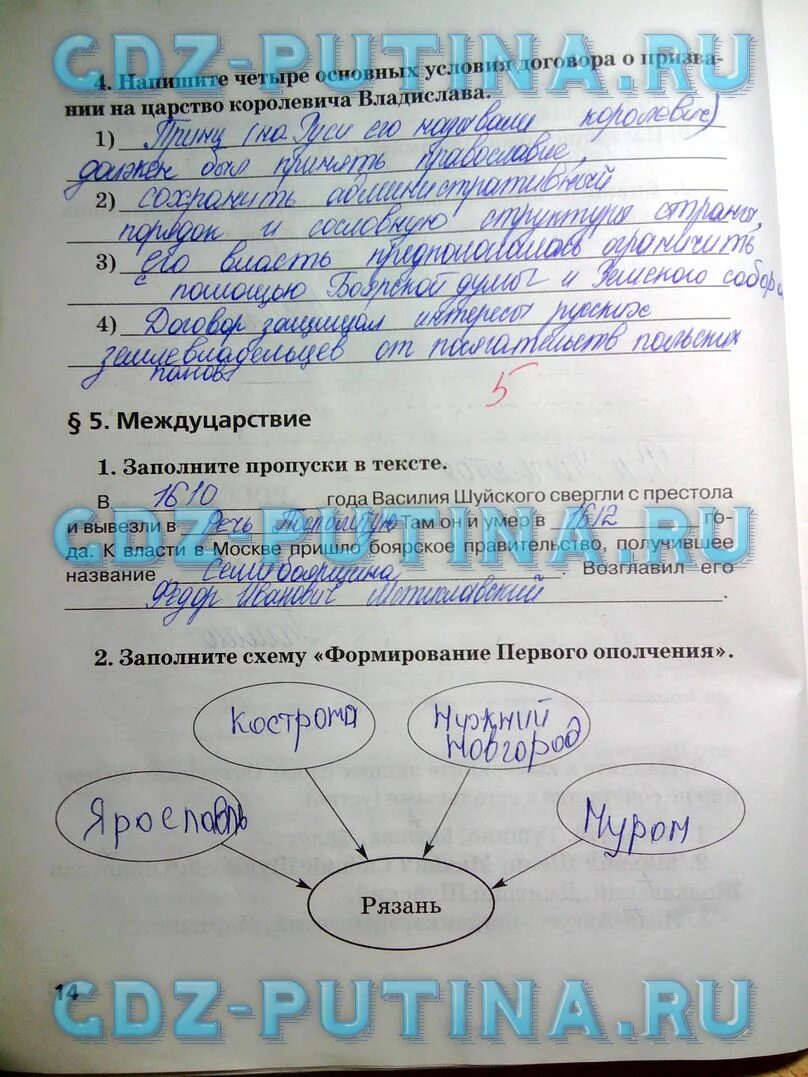 GDZ-PUTINA.RU
4. Напишите четыре основных условия договора о призва-
нии на царство королевича Владислава.
1) Принц (на Руси его называли королевич)
должен был принять православие,
2) сохранить административный
порядок и сословную структуры страны,
3) его власть предполагалось ограничить
с помощью Боярской думы и Земского собора
4) Договор защищал интересы русских
землевладельцев от посягательств польских
панов
5
§ 5. Междуцарствие
1. Заполните пропуски в тексте.
В 1610 года Василия Шуйского свергли с престола
и вывезли в Речь Посполитую. Там он и умер в 1612 го-
GDZ-PUTINA.RU
да. К власти в Москве пришло боярское правительство, получившее
название Семибоярщина. Возглавил его
Фёдор Иванович Мстиславский.
2. Заполните схему «Формирование Первого ополчения».
Кострома
Нижний
Новгород
Ярославль
Муром
Рязань
14
GDZ-PUTINA.RU